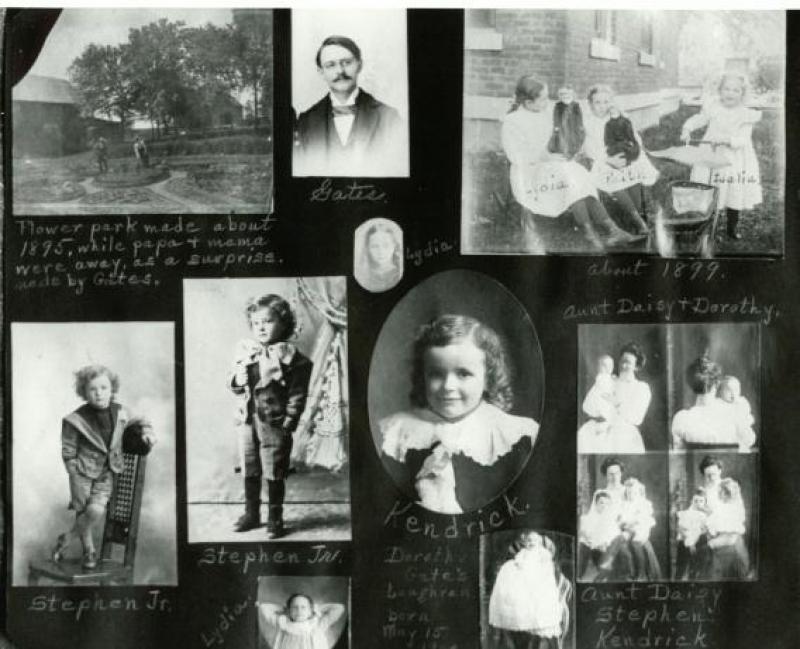 Gates.
Flower park made about
1895, while papa + mama
were away, as a surprise.
made by Gates.
Lydia
about 1899.
Aunt Daisy + Dorothy.
Kendrick.
Stephen Jr.
Stephen Jr.
Lydia
Dorothy
Gate's
Loughran
born
May 15
Aunt Daisy
Stephen
Kendrick